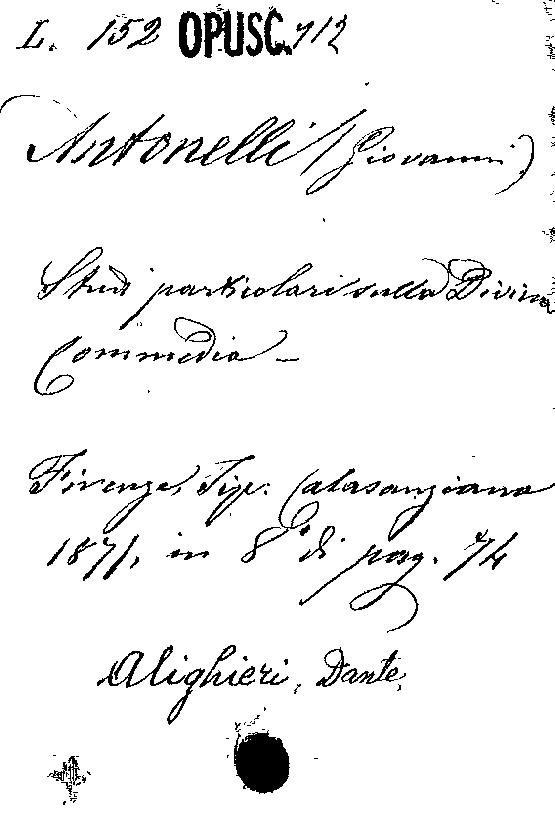 L. 152 OPUSC. 712
Antonelli (Giovanni)
Studi particolari sulla Divina
Commedia –
Firenze, Tip. Calasanziana
1871, in 8° di pag. 74
Alighieri, Dante.